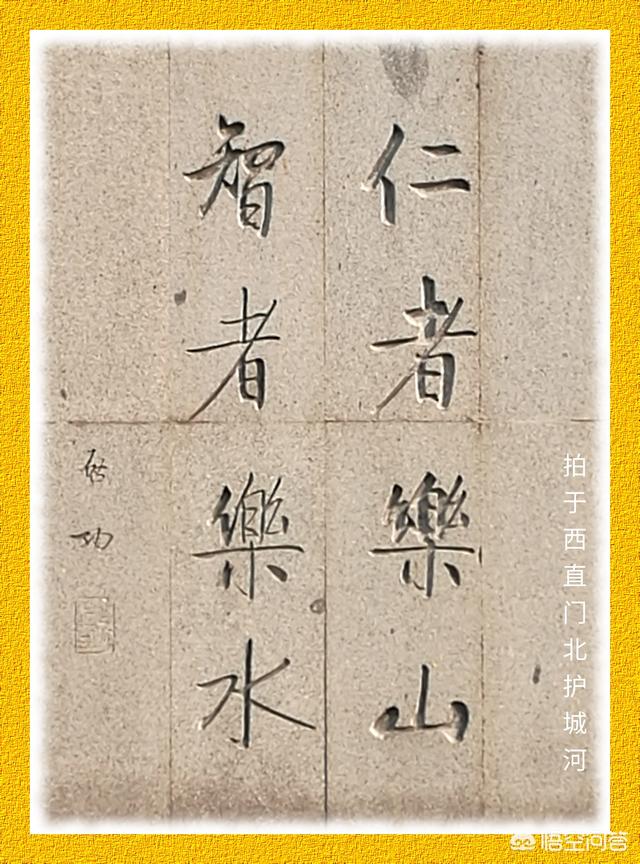 仁者樂山
智者樂水
啓功
拍于西直门北护城河
悟空问答